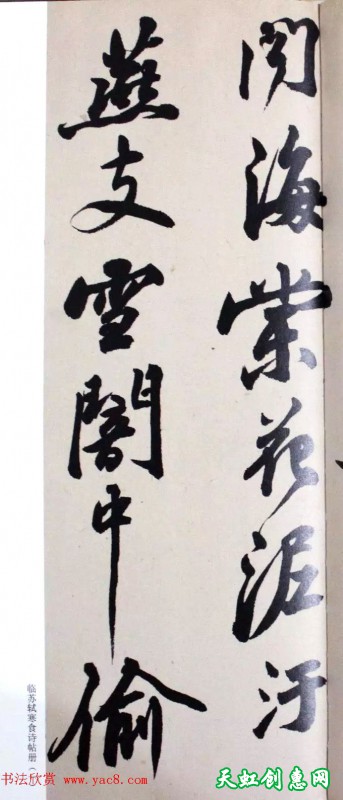 闻海棠花泥汙
燕支雪闇中偷
临苏轼寒食诗帖册（
书法欣赏 www.yac8.com
天虹创惠网